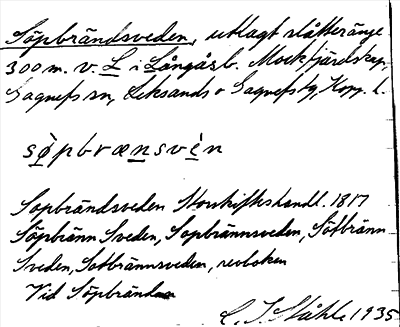 Söpbrändsveden, utlagt slåtteränge
300 m. v. L i Långåsb. Mockfjärdskap,
Gagnefs sn, Leksands o Gagnefs tg, Kopp. l.
sö̀pbrænsvèn
Söpbrändsveden Storskifteshandl. 1817
Söpbränn Sveden, Sopbrännsveden, Sötbränn
Sveden, Sotbrännsveden, revboken
Vid Söpbrändan
C. I. Ståhle 1935